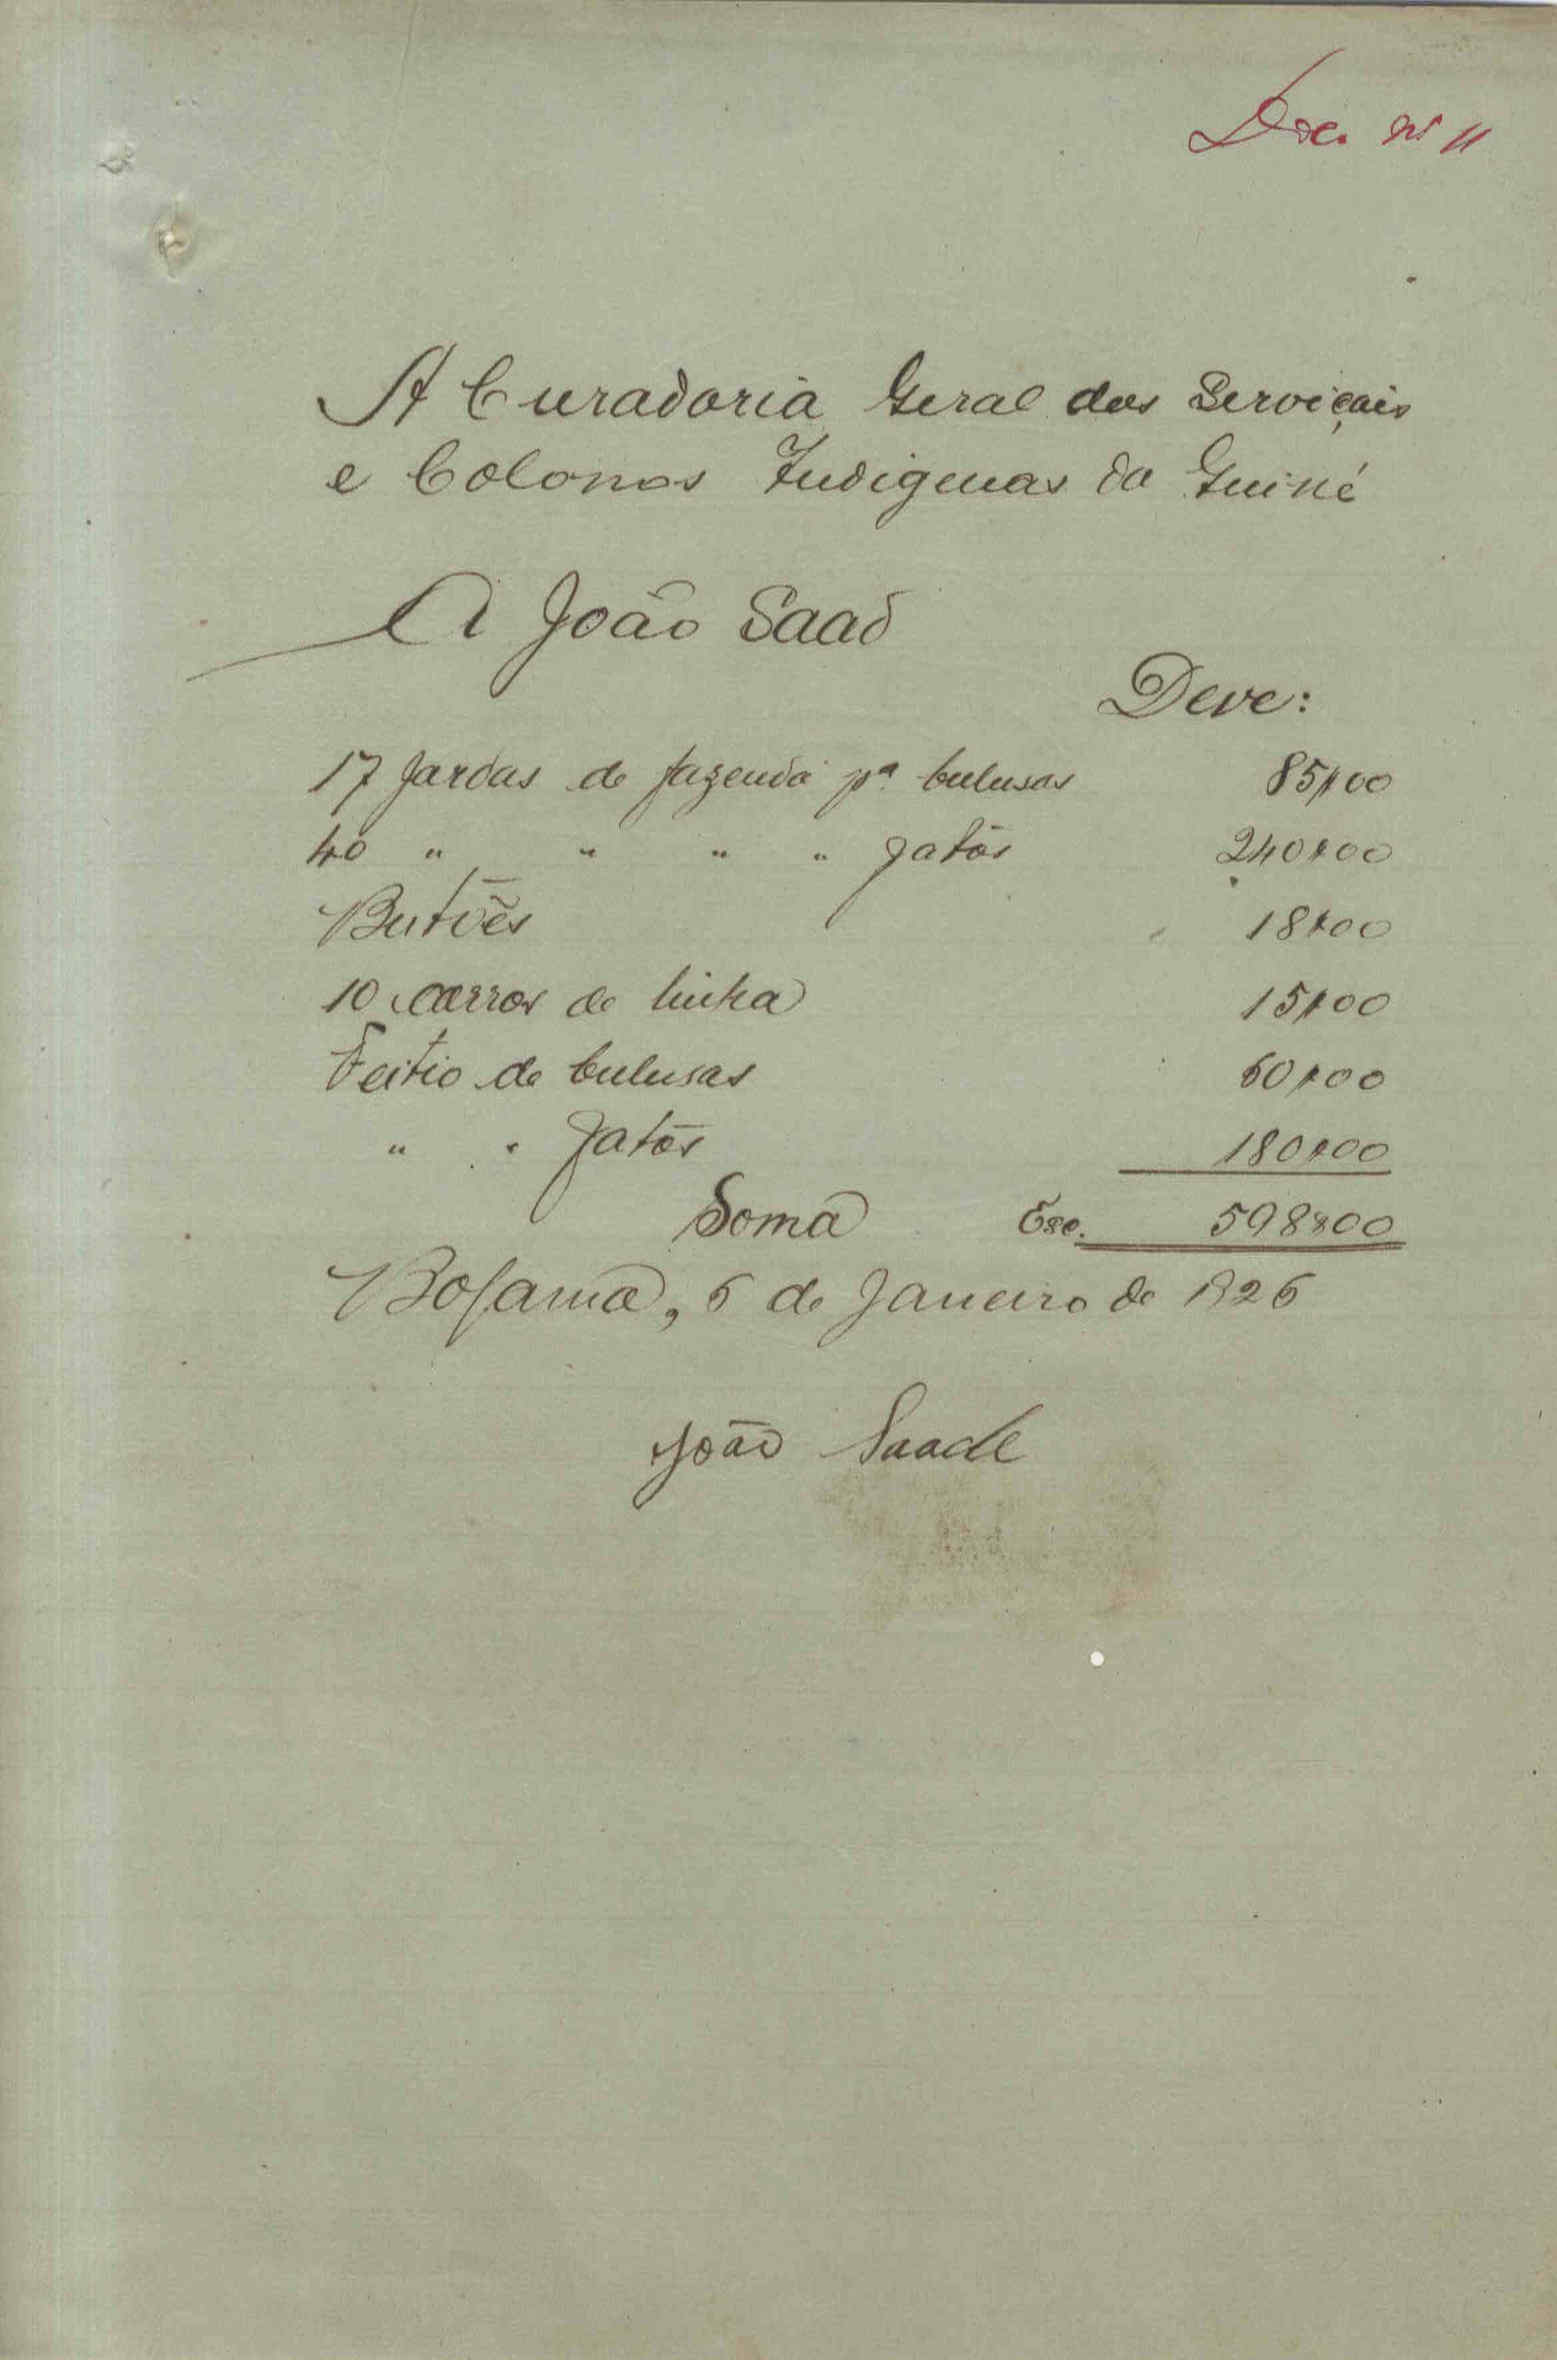 Doc. nº 11
A Curadoria Geral dos Serviçais
e Colonos Indigenas da Guiné
A João Saad
Deve:
17 Jardas de fazenda pª bulusas 85$00
40 " " " " fatos 240$00
Butões 18$00
10 carros de linha 15$00
Feitio de bulusas 60$00
" " fatos 180$00
Soma Esc. 598$00
Bolama, 6 de Janeiro de 1926
João Saade